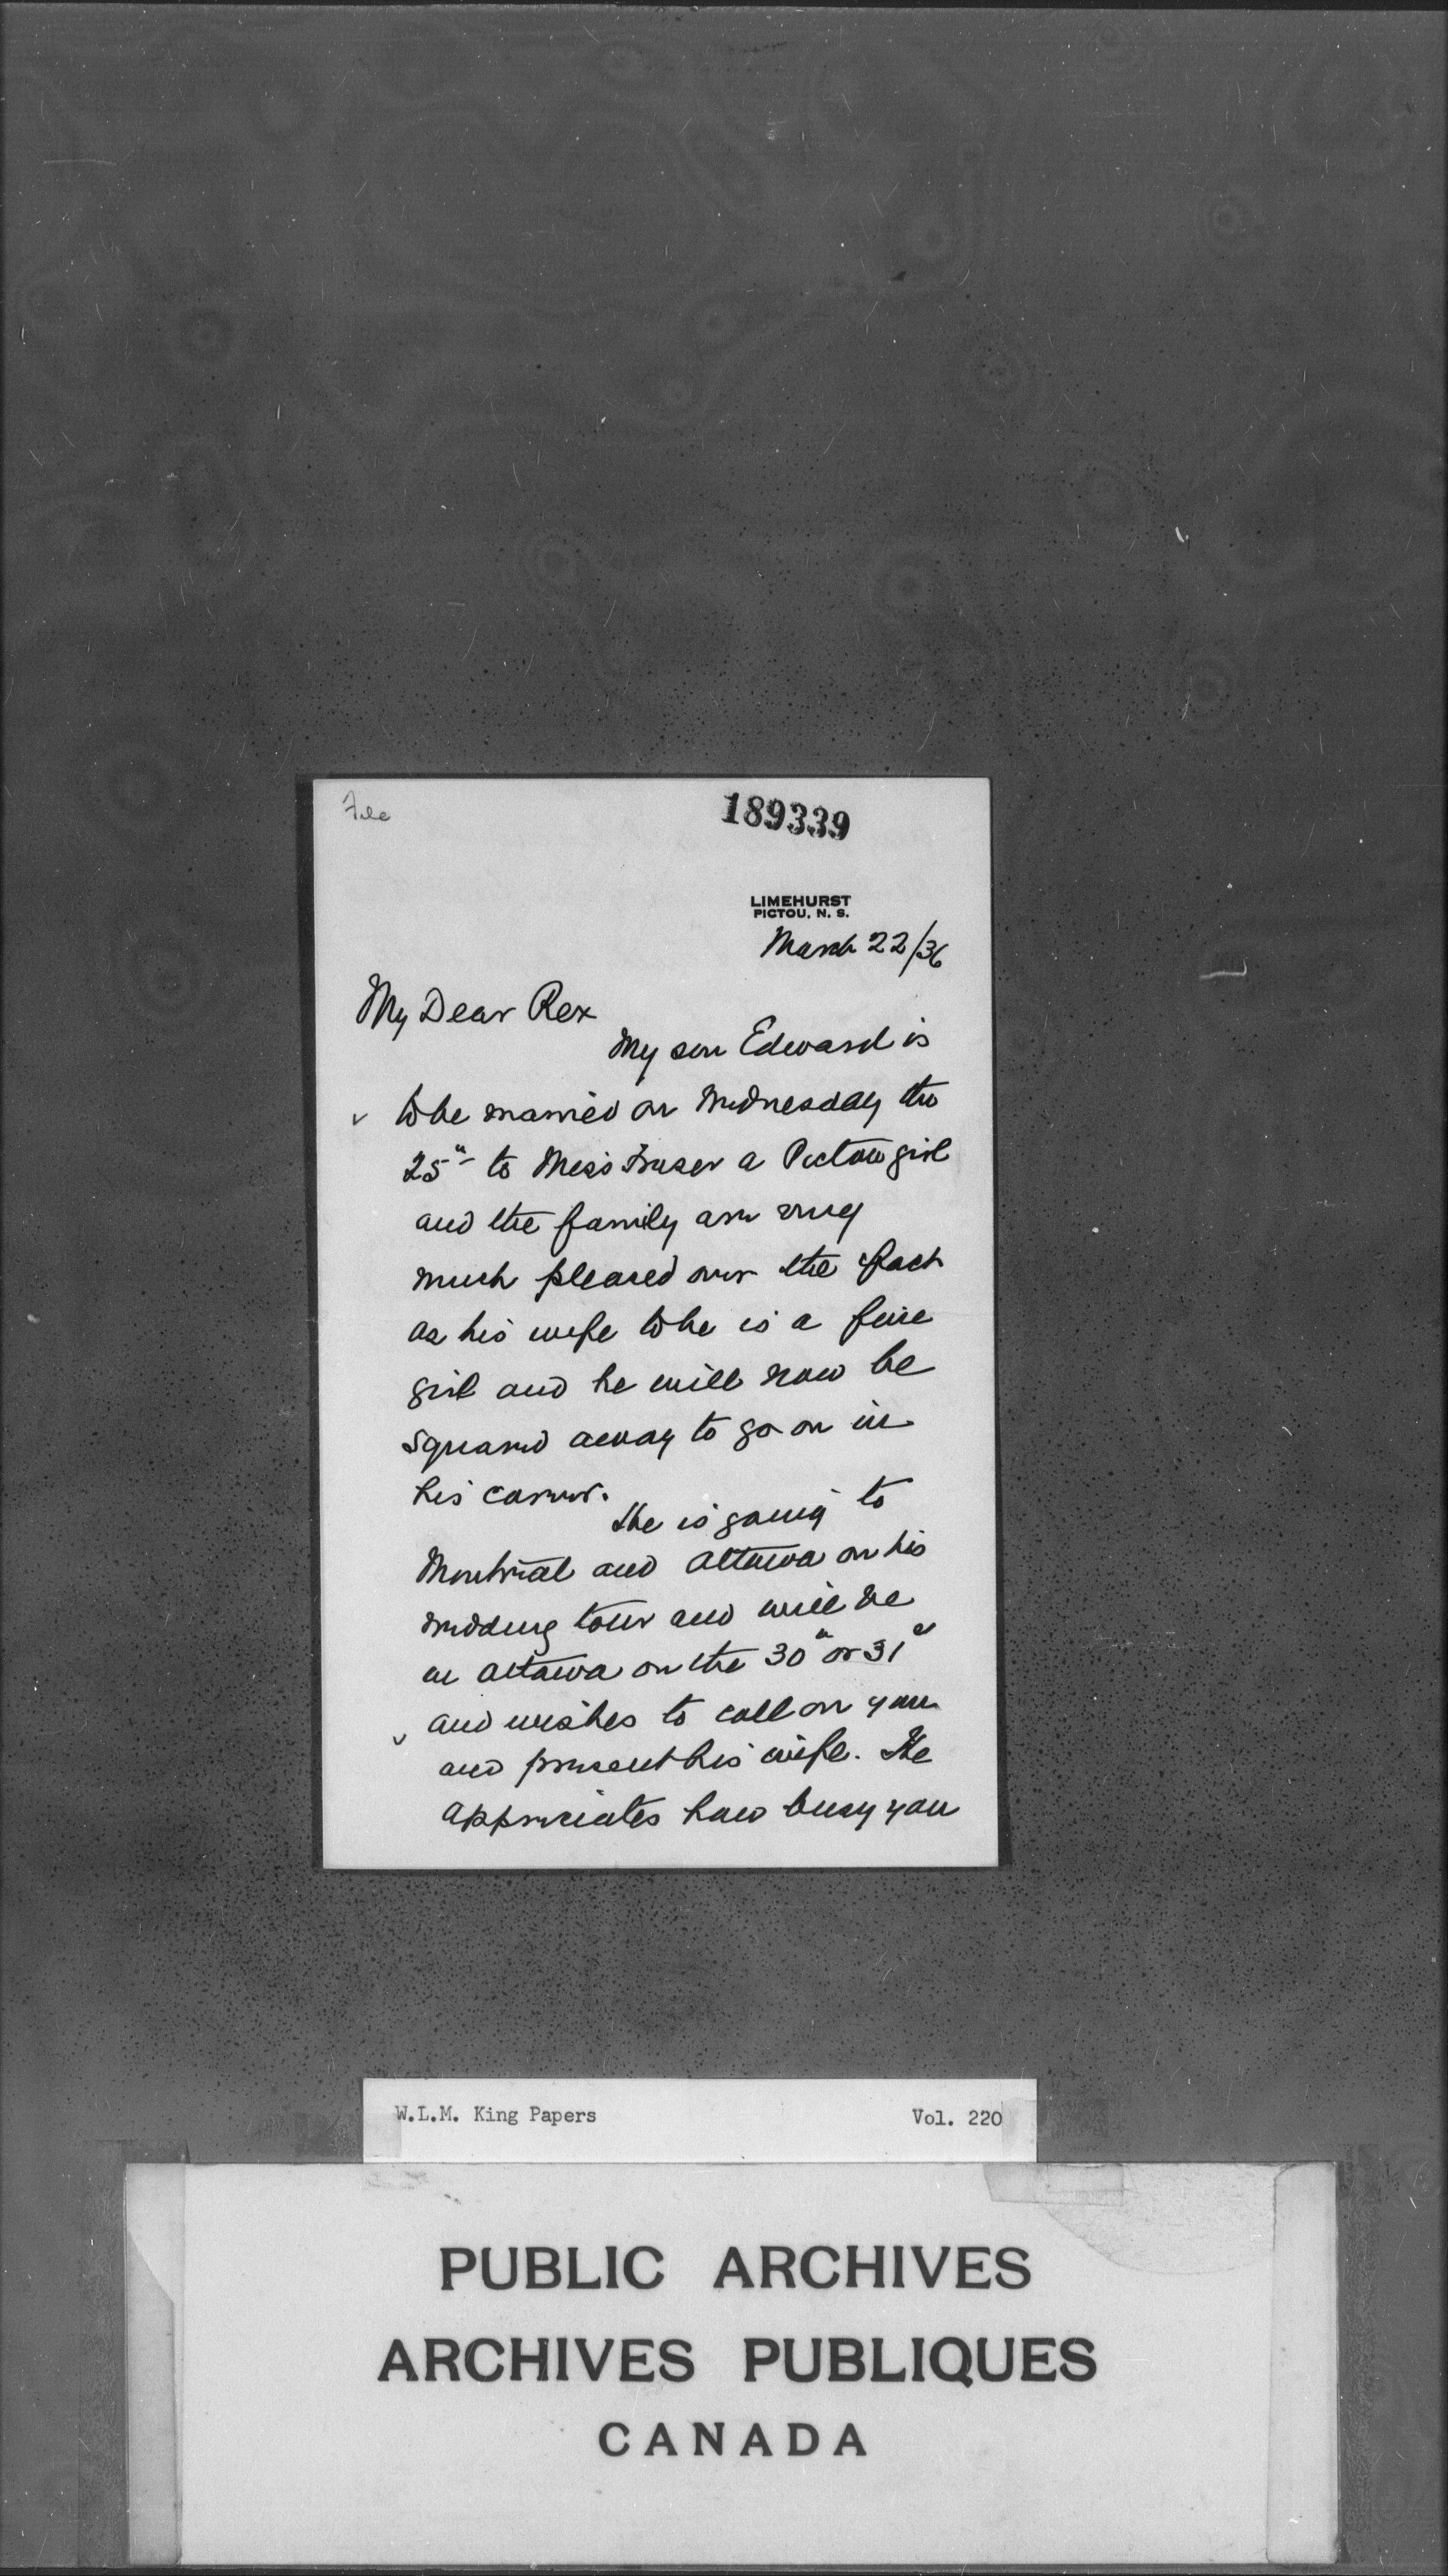 File
189339
LIMEHURST
PICTOU, N. S.
March 22/36
My Dear Rex
My son Edward is
to be married on Wednesday the
25th to Miss Fraser a Pictou girl
and the family are very
much pleased over the fact
as his wife to be is a fine
girl and he will now be
squared away to go on in
his career.
He is going to
Montreal and Ottawa on his
wedding tour and will be
in Ottawa on the 30th or 31st
and wishes to call on you
and present his wife. He
appreciates how busy you
W.L.M. King Papers Vol. 220
PUBLIC ARCHIVES
ARCHIVES PUBLIQUES
CANADA